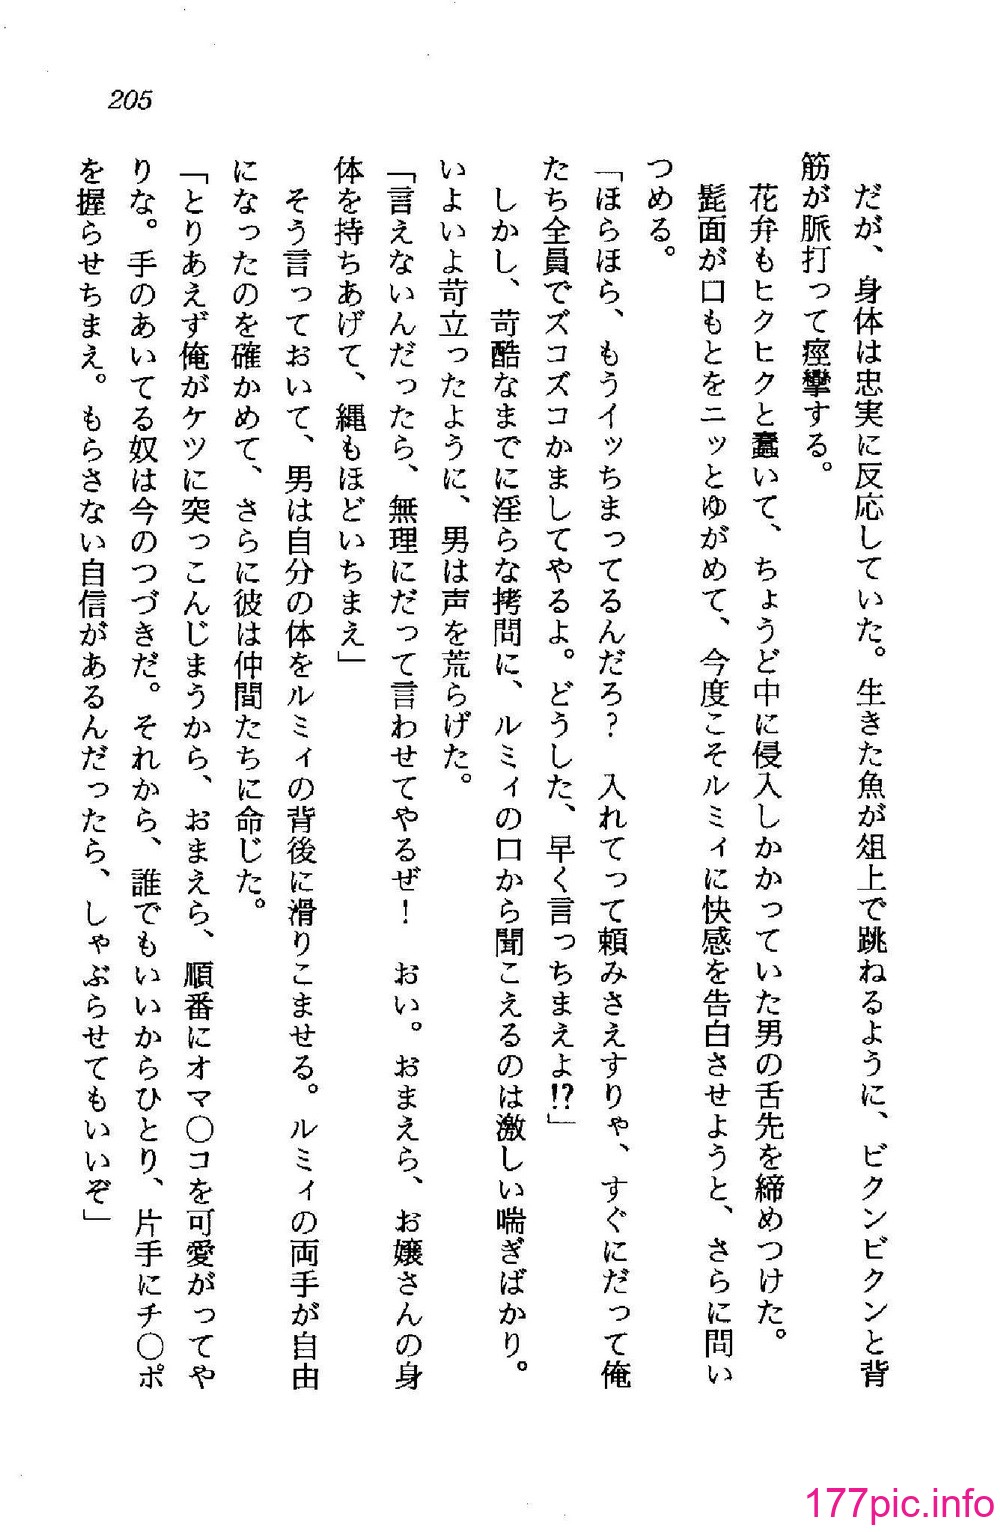 205
だが、身体は忠実に反応していた。生きた魚が俎上で跳ねるように、ビクンビクンと背
筋が脈打って痙攣する。
花弁もヒクヒクと蠢いて、ちょうど中に侵入しかかっていた男の舌先を締めつけた。
髭面が口もとをニッとゆがめて、今度こそルミィに快感を告白させようと、さらに問い
つめる。
「ほらほら、もうイッちまってるんだろ?　入れてって頼みさえすりゃ、すぐにだって俺
たち全員でズコズコかましてやるよ。どうした、早く言っちまえよ!?」
しかし、苛酷なまでに淫らな拷問に、ルミィの口から聞こえるのは激しい喘ぎばかり。
いよいよ苛立ったように、男は声を荒らげた。
「言えないんだったら、無理にだって言わせてやるぜ!　おい。おまえら、お嬢さんの身
体を持ちあげて、縄もほどいちまえ」
そう言っておいて、男は自分の体をルミィの背後に滑りこませる。ルミィの両手が自由
になったのを確かめて、さらに彼は仲間たちに命じた。
「とりあえず俺がケツに突っこんじまうから、おまえら、順番にオマ〇コを可愛がってや
りな。手のあいてる奴は今のつづきだ。それから、誰でもいいからひとり、片手にチ〇ポ
を握らせちまえ。もらさない自信があるんだったら、しゃぶらせてもいいぞ」
177pic.info